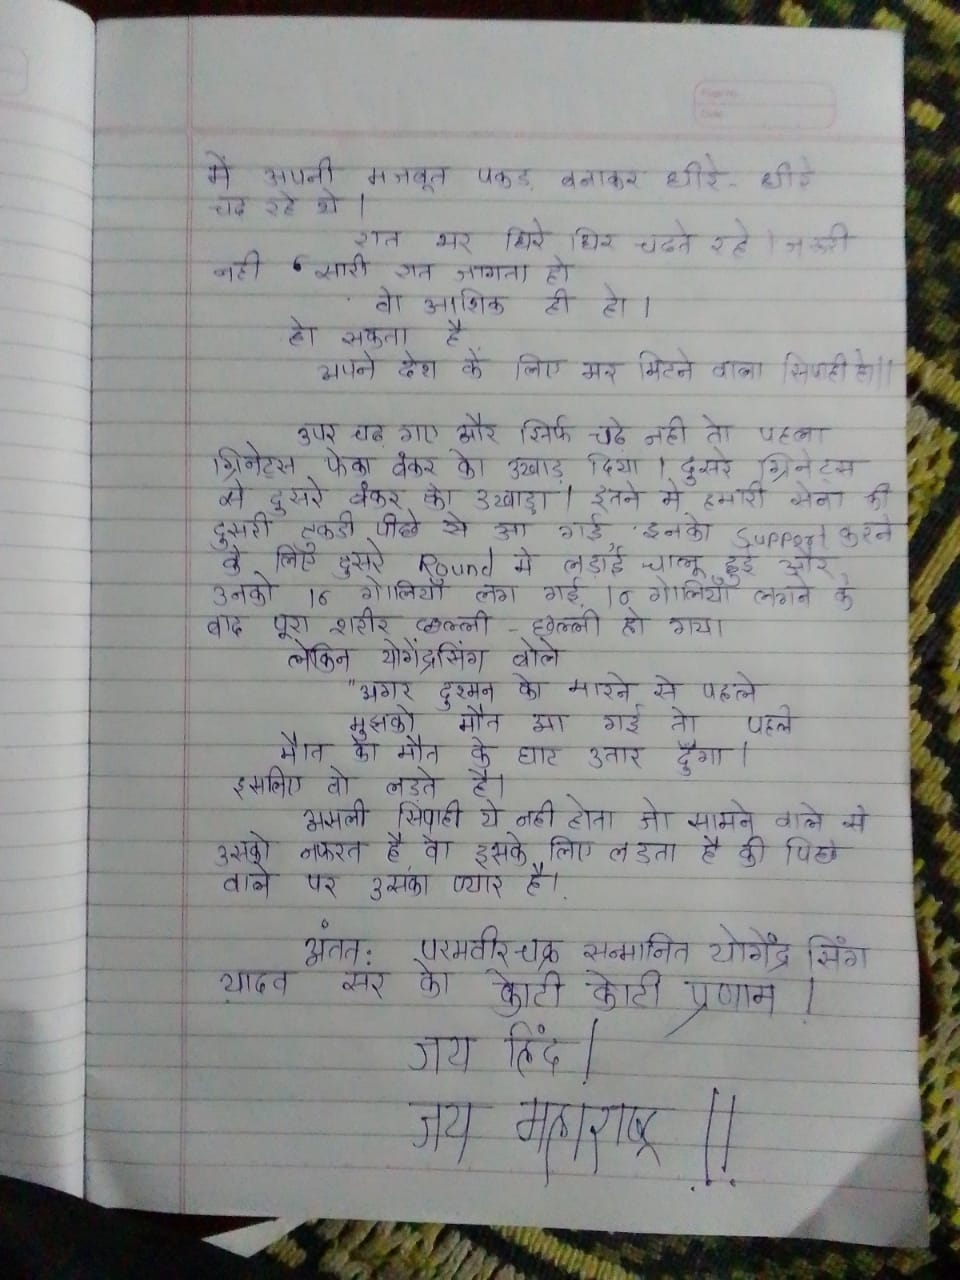 में अपनी मजबूत पकड़ बनाकर धीरे - धीरे
चढ रहे थे।
रात भर धिरे धिर चढते रहे। जरूरी
नही "सारी रात जागता हो
वो आशिक ही हो।
हो सकता है
अपने देश के लिए मर मिटने वाला सिपाही हो।।
उपर चढ़ गए और सिर्फ चढ़े नही तो पहला
ग्रिनेट्स फेका बंकर को उखाड़ दिया। दुसरे ग्रिनेट्स
से दुसरे बंकर को उखाडा। इतने मे हमारी सेना की
दुसरी टुकडी पीछे से आ गई, इनको Support करने
के लिए दुसरे Round मे लड़ाई चालू हुई और
उनको 16 गोलियाँ लग गई, 16 गोलियाँ लगने के
बाद पूरा शरीर छल्ली - छल्ली हो गया
लेकिन योगेंद्रसिंग बोले
"अगर दुश्मन को मारने से पहले
मुझको मौत आ गई तो पहले
मौत को मौत के घाट उतार दुँगा।
इसलिए वो लडते है।
असली सिपाही ये नही होता जो सामने वाले से
उसको नफरत है वो इसके लिए लडता है की पिछे
वाले पर उसका प्यार है।
अंतत: परमवीरचक्र सन्मानित योगेंद्र सिंग
यादव सर को कोटी कोटी प्रणाम।
जय हिंद।
जय महाराष्ट्र !!